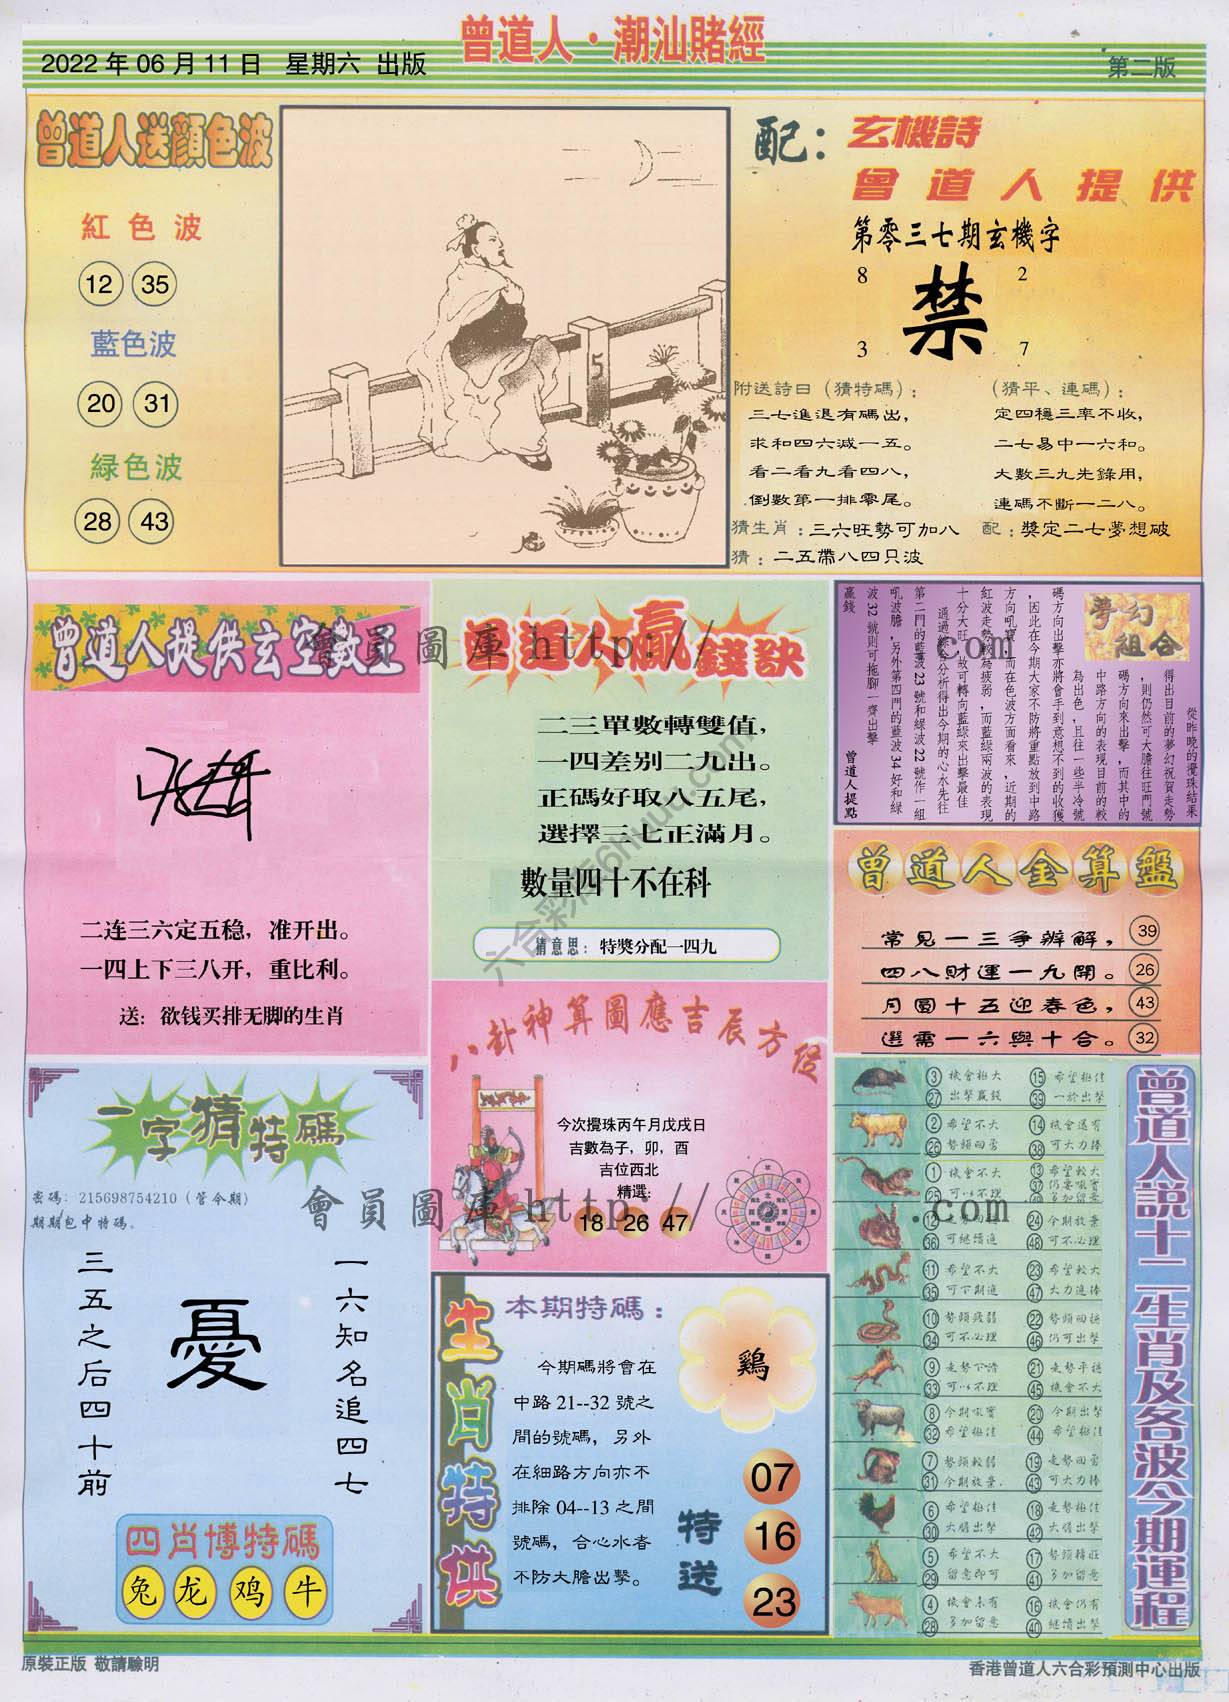 曾道人·潮汕賭經
2022 年 06 月 11 日 星期六 出版
第二版
曾道人送顏色波
紅色波
12 35
藍色波
20 31
緑色波
28 43
5
配：
玄機詩
曾道人提供
第零三七期玄機字
8 2
禁
3 7
附送詩曰（猜特碼）：
三七進退有碼出，
求和四六減一五。
看二看九看四八，
倒數第一排零尾。
（猜平、連碼）：
定四穩三率不收，
二七易中一六和。
大數三九先錄用，
連碼不斷一二八。
猜生肖：三六旺勢可加八
配：獎定二七夢想破
猜：二五帶八四只波
曾道人提供玄空數王
二连三六定五稳，准开出。
一四上下三八开，重比利。
送：欲钱买排无脚的生肖
曾道人贏錢訣
二三單數轉雙值，
一四差别二九出。
正碼好取八五尾，
選擇三七正滿月。
數量四十不在科
猜意思：特獎分配一四九
夢幻組合
從昨晚的攪珠結果
得出目前的夢幻祝賀走勢
，則仍然可大膽往旺門號
碼方向來出擊，而其中的
中路方向的表現目前的較
為出色，且往一些半冷號
碼方向出擊亦將會手到意想不到的收獲
，因此在今期大家不防將重點放到中路
方向吼寶，而在色波方面看來，近期的
紅波走勢較為疲弱，而藍綠兩波的表現
十分大旺，故可轉向藍綠來出擊最佳
通過綜合分析得出今期的心水先往
第二門的藍波 23 號和綠波 22 號作一組
吼波膽，另外第四門的藍波 34 好和綠
波 32 號則可拖腳一齊出擊
贏錢
曾道人提點
曾道人金算盤
常見一三爭辦解，39
四八財運一九開。26
月圓十五迎春色，43
選需一六與十合。32
八卦神算圖應吉辰方位
今次攪珠丙午月戊戌日
吉數為子，卯，酉
吉位西北
精選:
18 26 47
一字猜特碼
密碼：215698754210（管今期）
期期包中特碼。
一六知名追四七
憂
三五之后四十前
四肖博特碼
兔 龙 鸡 牛
生肖特供
本期特碼：
今期碼將會在
中路 21--32 號之
間的號碼，另外
在細路方向亦不
排除 04--13 之間
號碼，合心水者
不防大膽出擊。
鷄
特送
07
16
23
曾道人說十二生肖及各波今期運程
3 機會極大 15 希望極佳
27 出擊贏錢 39 一於出擊
2 希望不大 14 機會還有
26 勢頭回勇 38 可大力捧
1 機會不大 13 希望較大
37 仍要吼實
25 可以不理 49 多加留意
12 24 今期放棄
36 可繼續追 48 可不必理
11 希望不大 23 希望較大
35 可下期追 47 大力追捧
10 勢頭疲弱 22 勢頭回穩
34 可不必理 46 仍可出擊
9 走勢下滑 21 走勢平穩
33 可以不理 45 機會不大
8 今期吼實 20 今期出擊
32 希望極佳 44 希望極佳
7 勢頭較弱 19 走勢回勇
31 今期放棄. 43 可大力捧
6 希望極佳 18 走勢極佳
30 大膽出擊 42 大膽出擊
5 希望不大 17 勢頭轉旺
29 留意即可 41 多加留意
4 機會未有 16 機會仍有
28 多加留意 40 繼續出擊
會員圖庫 http:// .com
會員圖庫 http:// .com
六合彩库6huuu.com
原裝正版 敬請驗明
香港曾道人六合彩預測中心出版